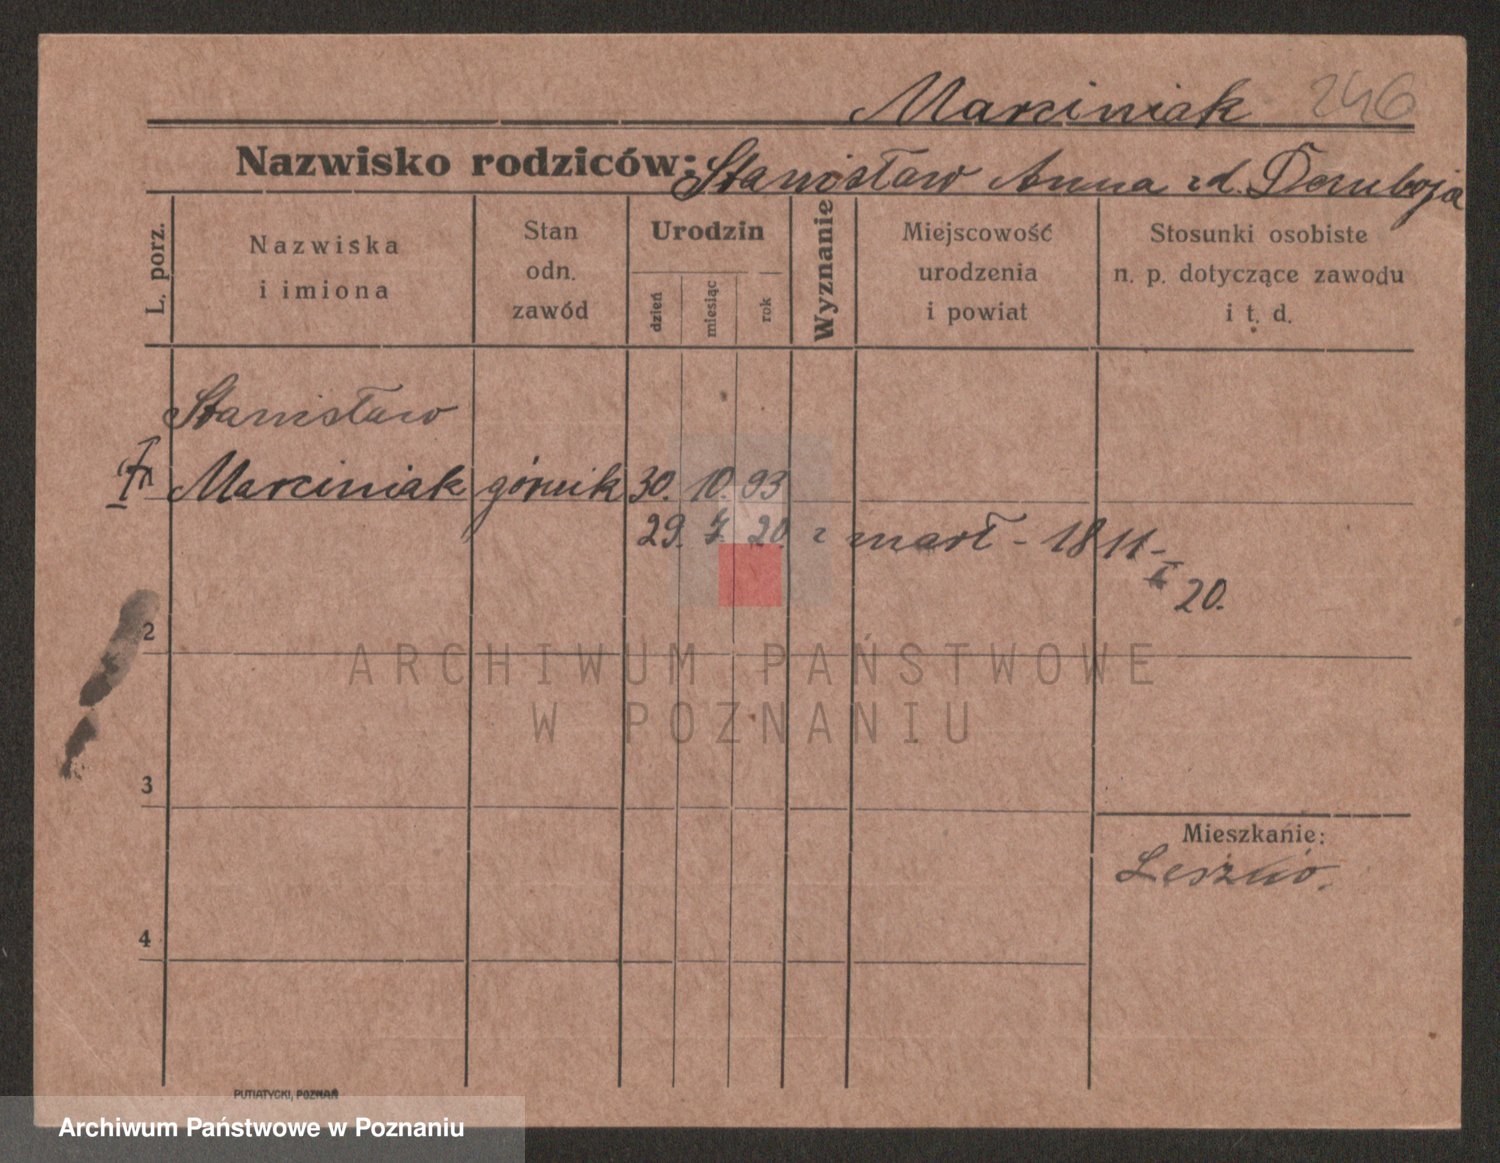 Marciniak 246
Nazwisko rodziców: Stanisław Anna zd. Demboja
L. porz.
Nazwiska
i imiona
Stan
odn.
zawód
Urodzin
dzień
miesiąc
rok
Wyznanie
Miejscowość
urodzenia
i powiat
Stosunki osobiste
n. p. dotyczące zawodu
i t. d.
Stanisław
Marciniak górnik 30. 10. 93
29. 7. 20. zmarł -
20.
2
3
4
Mieszkanie:
Leszno.
ARCHIWUM PAŃSTWOWE
W POZNANIU
PUTIATYCKI, POZNAŃ
Archiwum Państwowe w Poznaniu